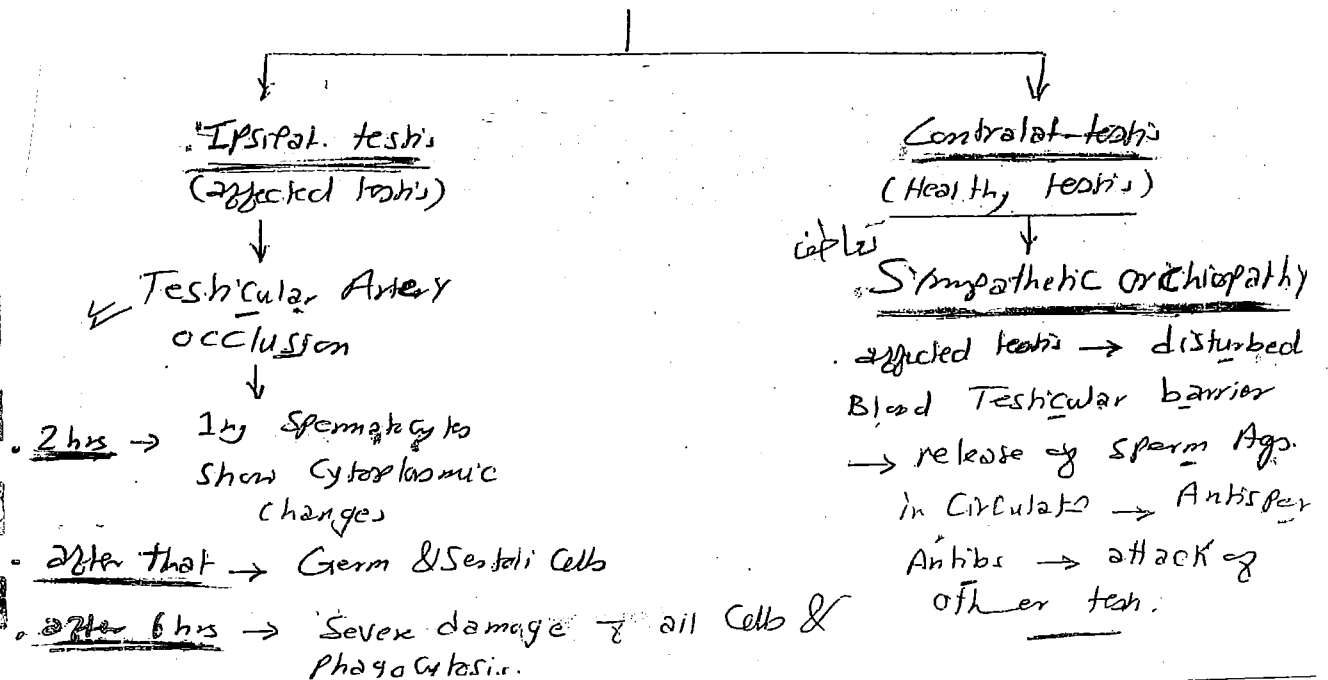 Ipsilat. testis
(affected testis)
Testicular Artery
occlussion
. 2 hrs → 1ry Spermatocytes
Show Cytoplasmic
Changes
. after that → Germ & Sertoli Cells
. after 6 hrs → Severe damage of all Cells &
Phagocytosis.
Contralat. testis
(Healthy testis)
تعاطف
Sympathetic orchiopathy
. affected testis → disturbed
Blood Testicular barrier
→ release of sperm Ags.
in Circulato → Antisper
Antibs → attack of
other tesh.